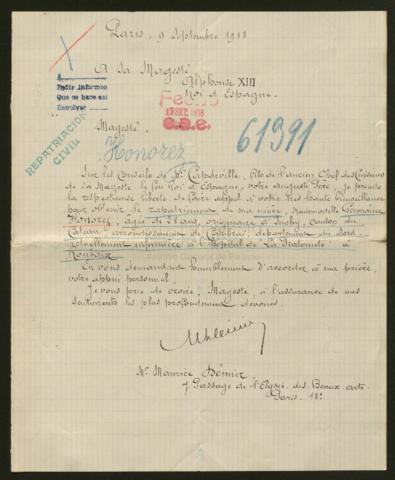 Paris, 9 Septembre 1918
A Sa Magesté
Alphonse XIII
Roi d'Espagne.
Pedir informes
Que se hace así
Devolver
Fecho
17 SET. 1918
Magesté.
61391
REPATRIACION
CIVIL
Honorez
Sur les conseils de Mr Capdeville, fils de l'ancien Chef des Cuisines
de Sa Magesté le feu Roi d'Espagne, votre Auguste Père, je prends
la respectueuse liberté de faire appel à votre très haute bienveillance
pour obtenir le rapatriement de ma nièce, Mademoiselle Germaine
Honorez, agée de 28 ans, originaire d'Inchy, canton du
Cateau, arrondissement de Cambrai, département du Nord.
actuellement infirmière à l'Hôpital de "La Fraternité" à
Roubaix
En vous demandant humblement d'accorder à ma prière,
votre appui personnel.
Je vous prie de croire, Magesté, à l'assurance de mes
sentiments les plus profondément dévoués.
Mr Maurice
7 Passage de l'Elysée des Beaux-Arts
Paris. 18e